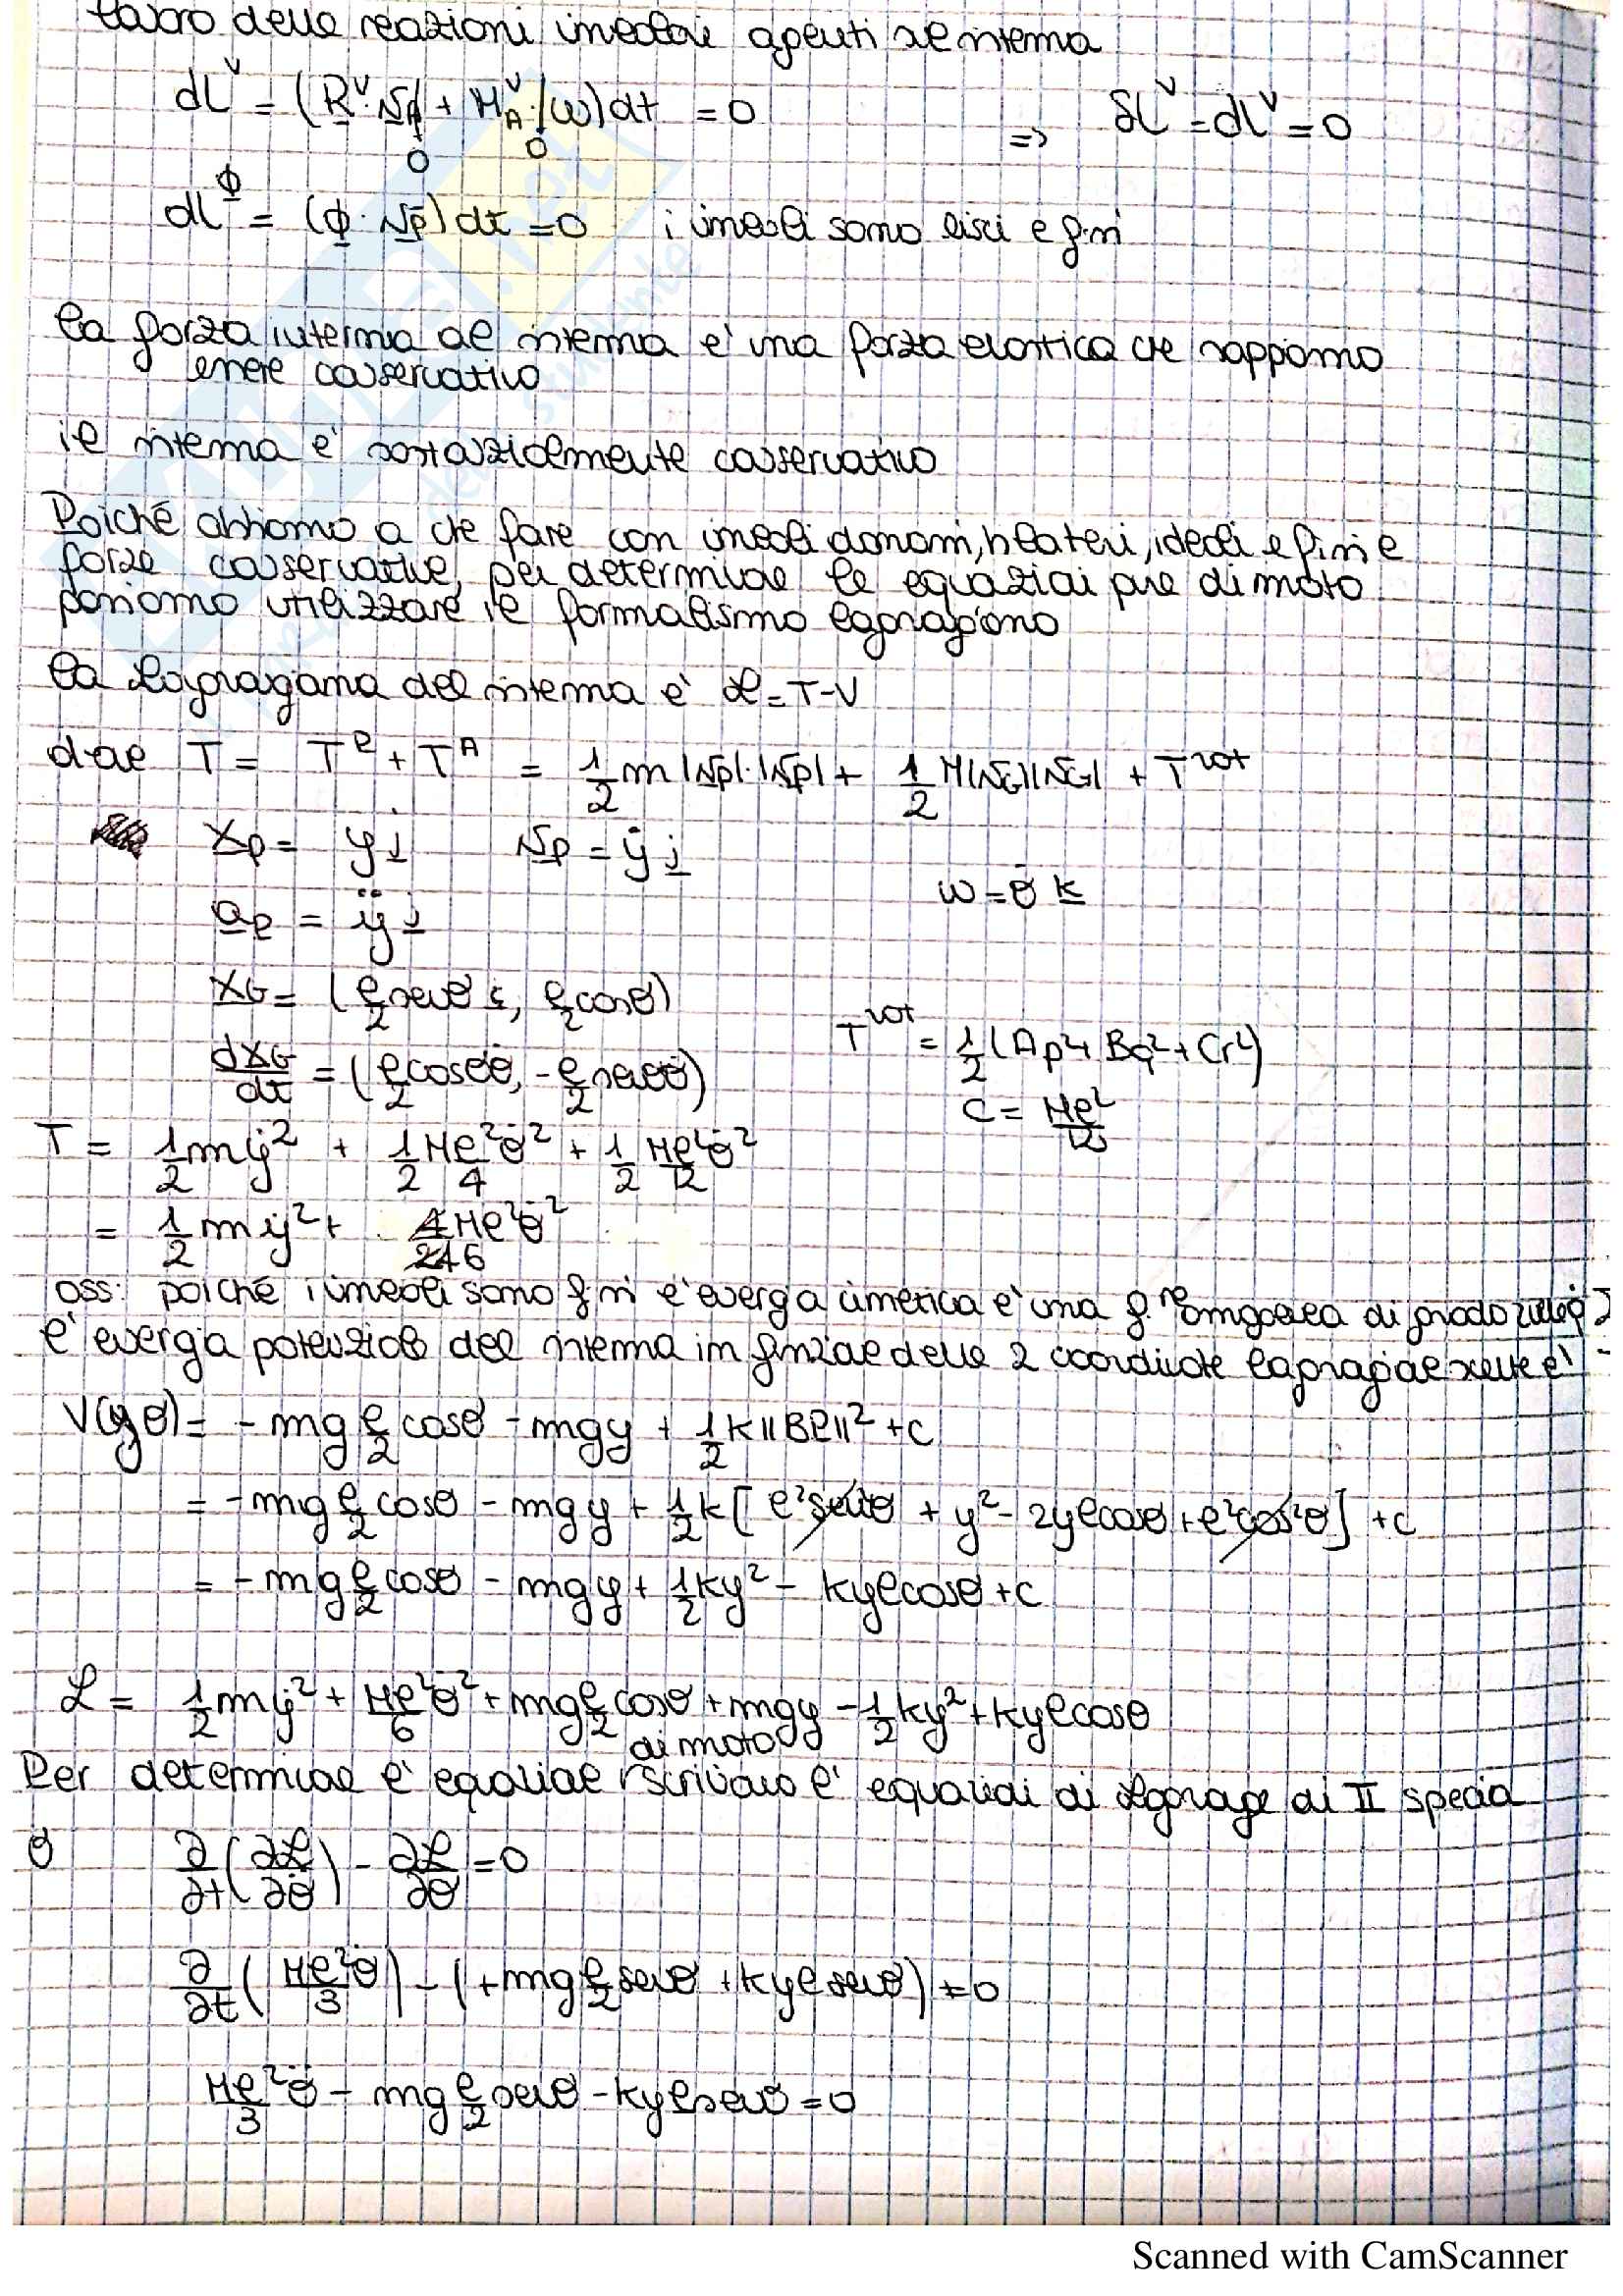 lavoro delle reazioni vincolari agenti sul sistema
dL^v = (R^v · v_A + M_A^v · ω)dt = 0 => δL^v = dL^v = 0
0 0
dL^Φ = (Φ · v_P)dt = 0 i vincoli sono lisci e fissi
la forza interna al sistema e' una forza elastica che sappiamo
essere conservativo
il sistema e' sostanzialmente conservativo
Poiché abbiamo a che fare con vincoli olonomi, bilateri, ideali e fissi e
forze conservative, per determinare le equazioni pure di moto
possiamo utilizzare il formalismo lagrangiano
la Lagrangiana del sistema e' L = T-V
dove T = T^P + T^A = 1/2 m|v_P|·|v_P| + 1/2 M|v_G||v_G| + T^rot
x_P = y j v_P = ẏ j
ω = θ̇ k
a_P = ÿ j
x_G = (ℓ/2 senθ i, ℓ/2 cosθ)
T^rot = 1/2 (Ap² + Bq² + Cr²)
dx_G/dt = (ℓ/2 cosθ θ̇, -ℓ/2 senθ θ̇)
C = Mℓ²/12
T = 1/2 mẏ² + 1/2 Mℓ²/4 θ̇² + 1/2 Mℓ²/12 θ̇²
= 1/2 mẏ² + 4/24 6 Mℓ²θ̇²
oss: poiché i vincoli sono fissi l'energia cinetica e' una f. omogenea di grado 2
l'energia potenziale del sistema in funzione delle 2 coordinate lagrangiane scelte e'
V(y,θ) = -mg ℓ/2 cosθ - mgy + 1/2 k||BP||² + c
= -mg ℓ/2 cosθ - mgy + 1/2 k[ℓ²sen²θ + y² - 2yℓcosθ + ℓ²cos²θ] + c
= -mg ℓ/2 cosθ - mgy + 1/2 ky² - kyℓcosθ + c
L = 1/2 mẏ² + Mℓ²/6 θ̇² + mg ℓ/2 cosθ + mgy - 1/2 ky² + kyℓcosθ
di moto
Per determinare l'equazione scriviamo l'equazioni di Lagrange di II specia
θ ∂/∂t (∂L/∂θ̇) - ∂L/∂θ = 0
∂/∂t (Mℓ²/3 θ̇) - (+mg ℓ/2 senθ + kyℓsenθ) = 0
Mℓ²/3 θ̈ - mg ℓ/2 senθ - kyℓsenθ = 0
Scanned with CamScanner